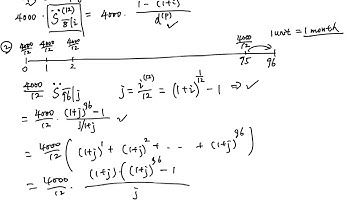 4000 · S̈^(12) 8|i = 4000 · 1 - (1+i) / d^(12) ✓
② 4000/12 4000/12 4000/12 4000/12 1 unit = 1 month
0 1 2 95 96
4000/12 S̈ 96|j j = i^(12)/12 = (1+i)^1/12 - 1 ⇒ ✓
= 4000/12 · (1+j)^96 - 1 / j/1+j ✓
= 4000/12 ( (1+j)^1 + (1+j)^2 + ... + (1+j)^96 )
= 4000/12 · (1+j) · ((1+j)^96 - 1 / j